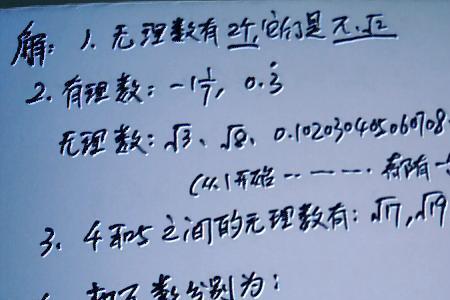 解: 1. 无理数有2个,它们是π.√2
2. 有理数: -1 1/7, 0.3̇
无理数: √3、√8、0.102030405060708
(从1开始……
3. 4和5之间的无理数有: √17, √19
数分别为: